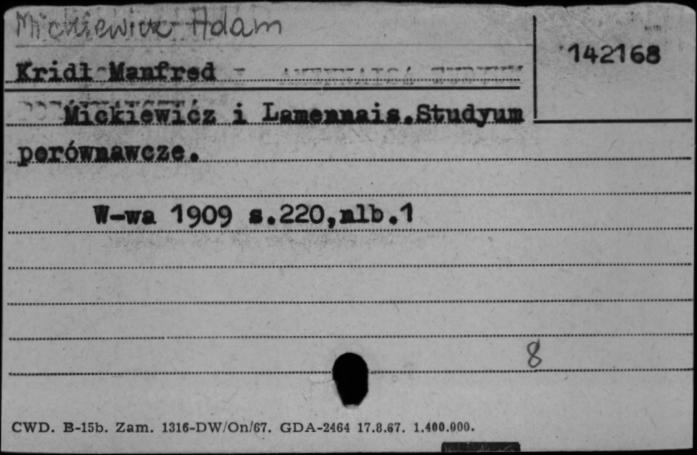 Mickiewicz Adam
142168
Kridl Manfred
Mickiewicz i Lamennais.Studyum
porównawcze.
W-wa 1909 s.220,nlb.1
8
CWD. B-15b. Zam. 1316-DW/On/67. GDA-2464 17.8.67. 1.400.000.